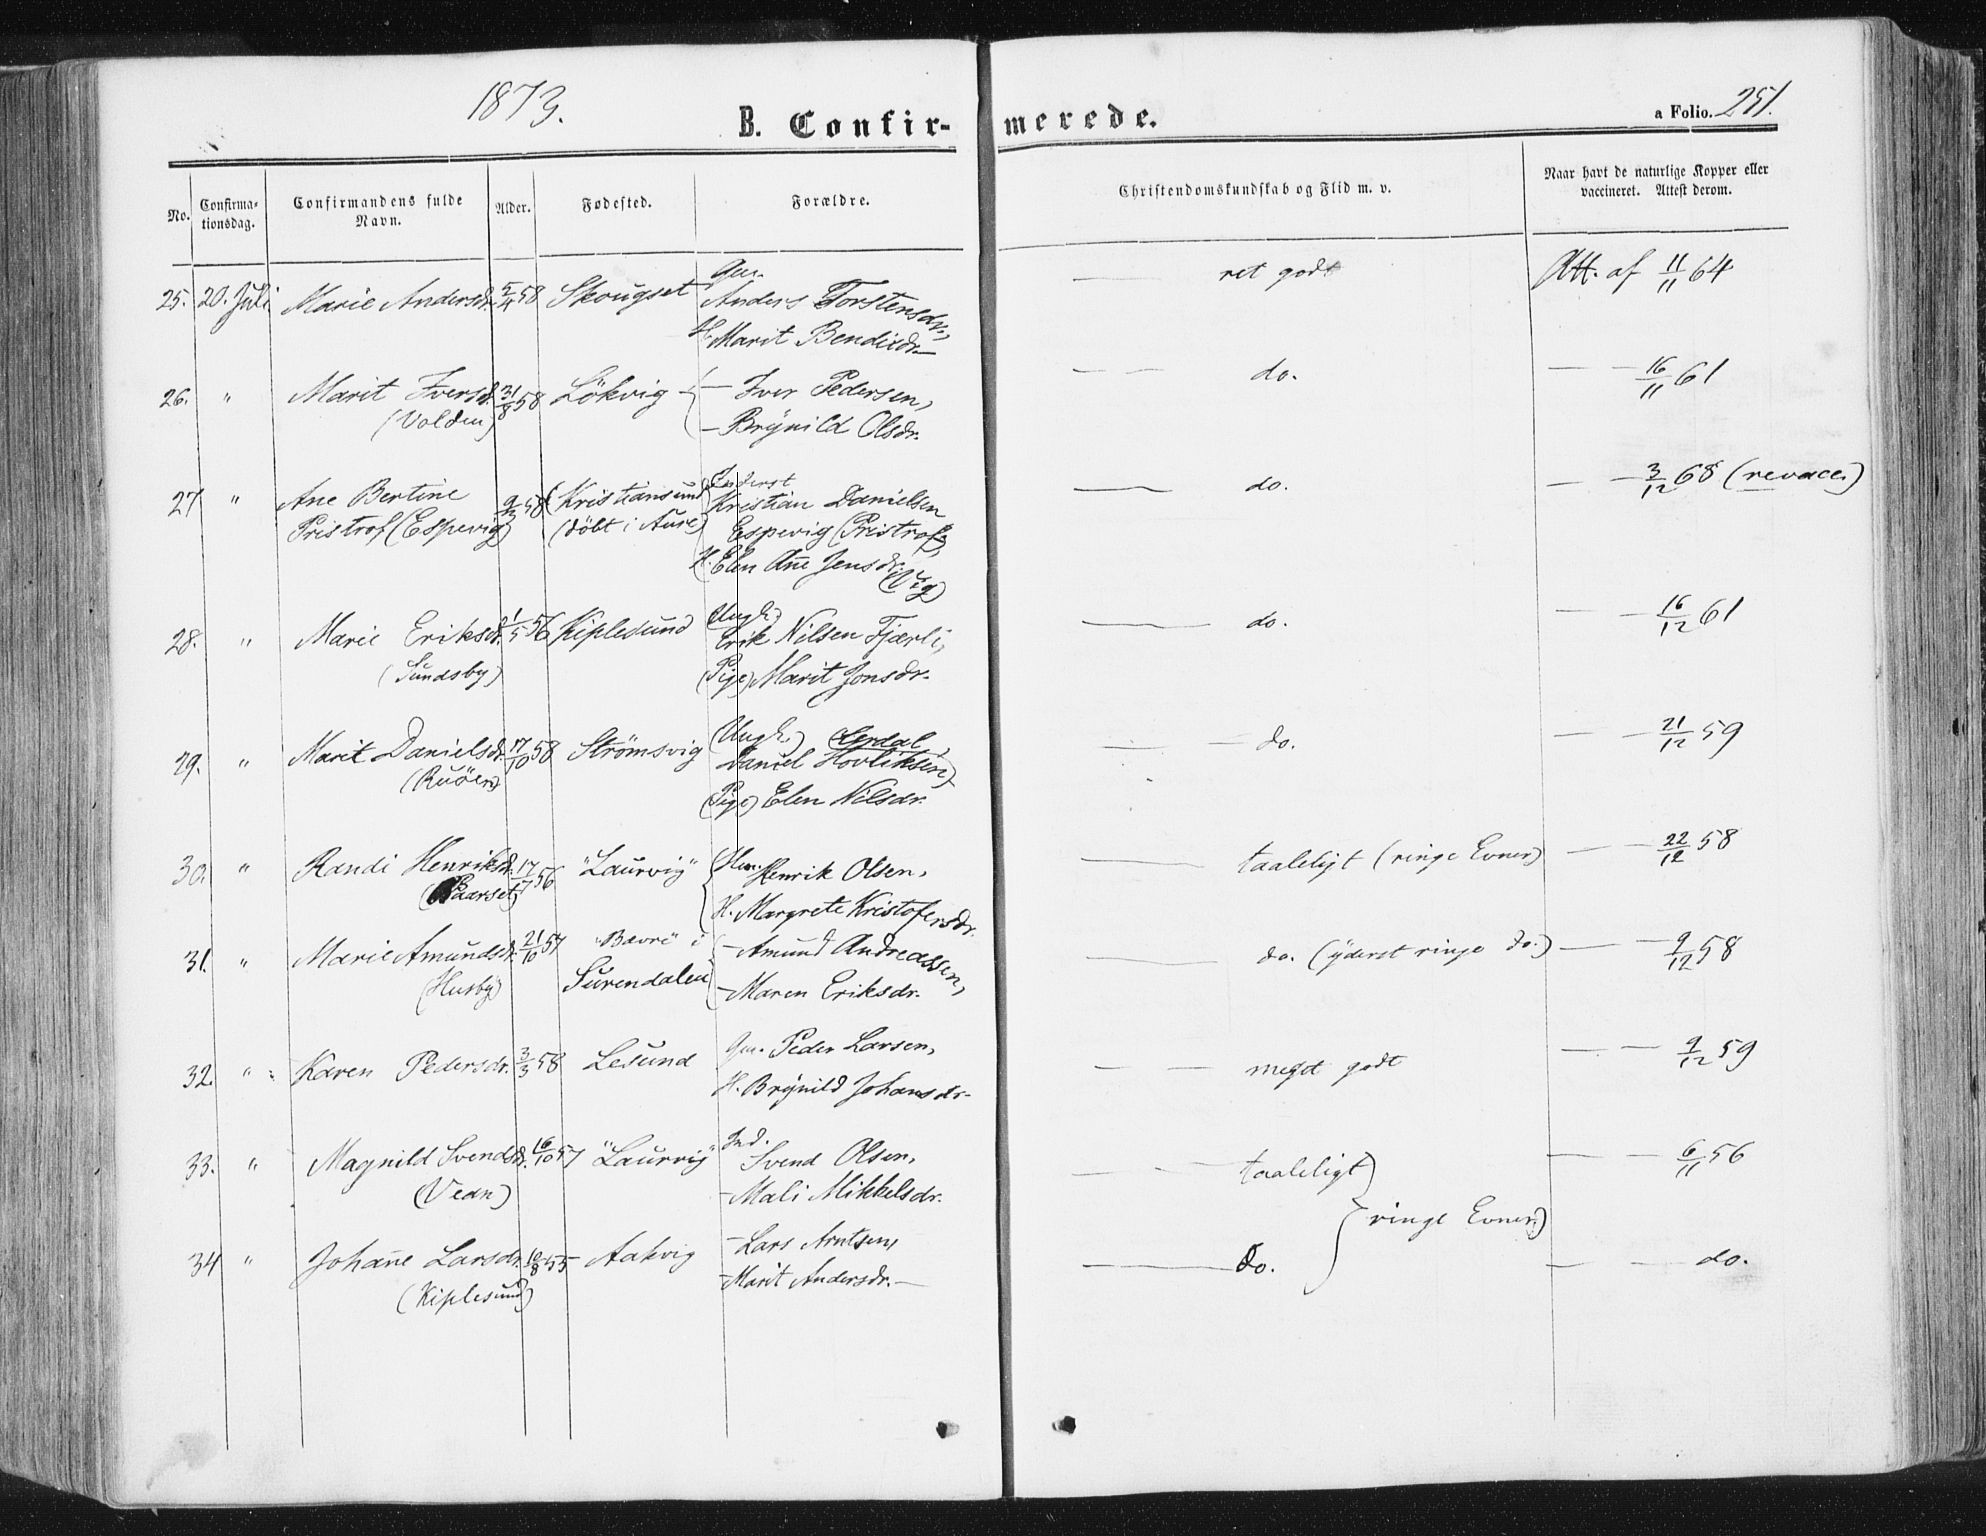 1873.
B. Confir- merede.
a Folio. 251.
No. Confirma-tionsdag. Confirmandens fulde Navn. Alder. Fødested. Forældre. Christendomskundskab og Flid m. v. Naar havt de naturlige Kopper eller vaccineret. Attest derom.
Gm.
25. 20. Juli Marie Andersdr. 5/4 58 Skougset Anders Torstensdr., — ret godt Att. af 11/11 64
H. Marit Bendixdr. —
26. " Marit Iversd. 31/8 58 Lökvig — Iver Pedersen, — — do. — — 16/11 61
(Volden) — Brynild Olsdr.
Inderst
27 " Ane Bertine 9/3 58 Kristiansund Kristian Danielsen — do. — 3/12 68 (revacc.)
Pristrof (Espevig) (döbt i Aure) Espevig (Pristrof),
H. Elen Ane Jensdr. (Vig)
(Ungk.)
28. " Marie Eriksdr. 1/5 56 Kiplesund Erik Nilsen Fjærli, — do. — — 16/12 61
(Sundsby) (Pige) Marit Jonsdr.
(Ungk.) Lerdal,
29. " Marit Danielsdr. 17/10 58 Strömsvig Daniel Hovliksen) — do. — — 21/12 59
(Ruöen) (Pige) Elen Nilsdr.
30. " Randi Henriksdr. 17/7 56 "Laurvig" Hm. Henrik Olsen, — taaleligt (ringe Evner) — — 22/12 58
(Baarset) H. Margrete Kristofersdr.
31. " Marie Amundsdr. 21/10 57 "Bævre" i — Amund Andreassen, — do. (yderst ringe do.) — — 9/12 58
(Husby) Surendalen — Maren Eriksdr.
32. " Karen Pedersdr. 3/3 58 Lesund Gm. Peder Larsen, — — meget godt — — 9/12 59
H. Brynild Johansdr.
Ind.
33. " Magnild Svendsdr. 16/10 57 "Laurvig" Svend Olsen, — — taaleligt — — 6/11 56
(Vean) — Mali Mikkelsdr.
ringe Evner)
34 " Johane Larsdr. 10/8 55 Aakvig — Lars Arntsen, — do. — — do.
(Kiplesund) — Marit Andersdr. —